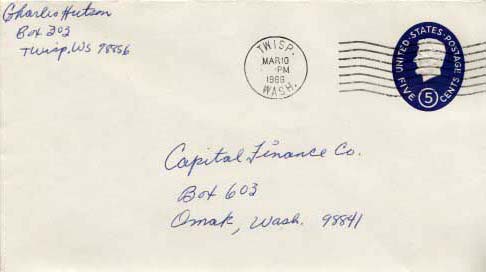 Charles Hutson
Box 202
Twisp, Ws 98856
TWISP,
MAR 10
-PM
1966
WASH.
UNITED·STATES·POSTAGE
FIVE 5 CENTS
Capital Finance Co.
Box 603
Omak, Wash. 98841